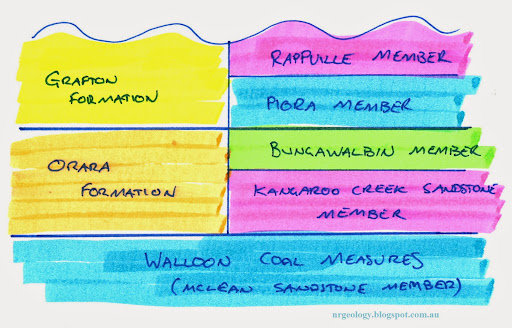 GRAFTON
FORMATION
RAPPVILLE MEMBER
PIORA MEMBER
ORARA
FORMATION
BUNGAWALBIN MEMBER
KANGAROO CREEK SANDSTONE
MEMBER
WALLOON COAL MEASURES
(MCLEAN SANDSTONE MEMBER)
nrgeology.blogspot.com.au